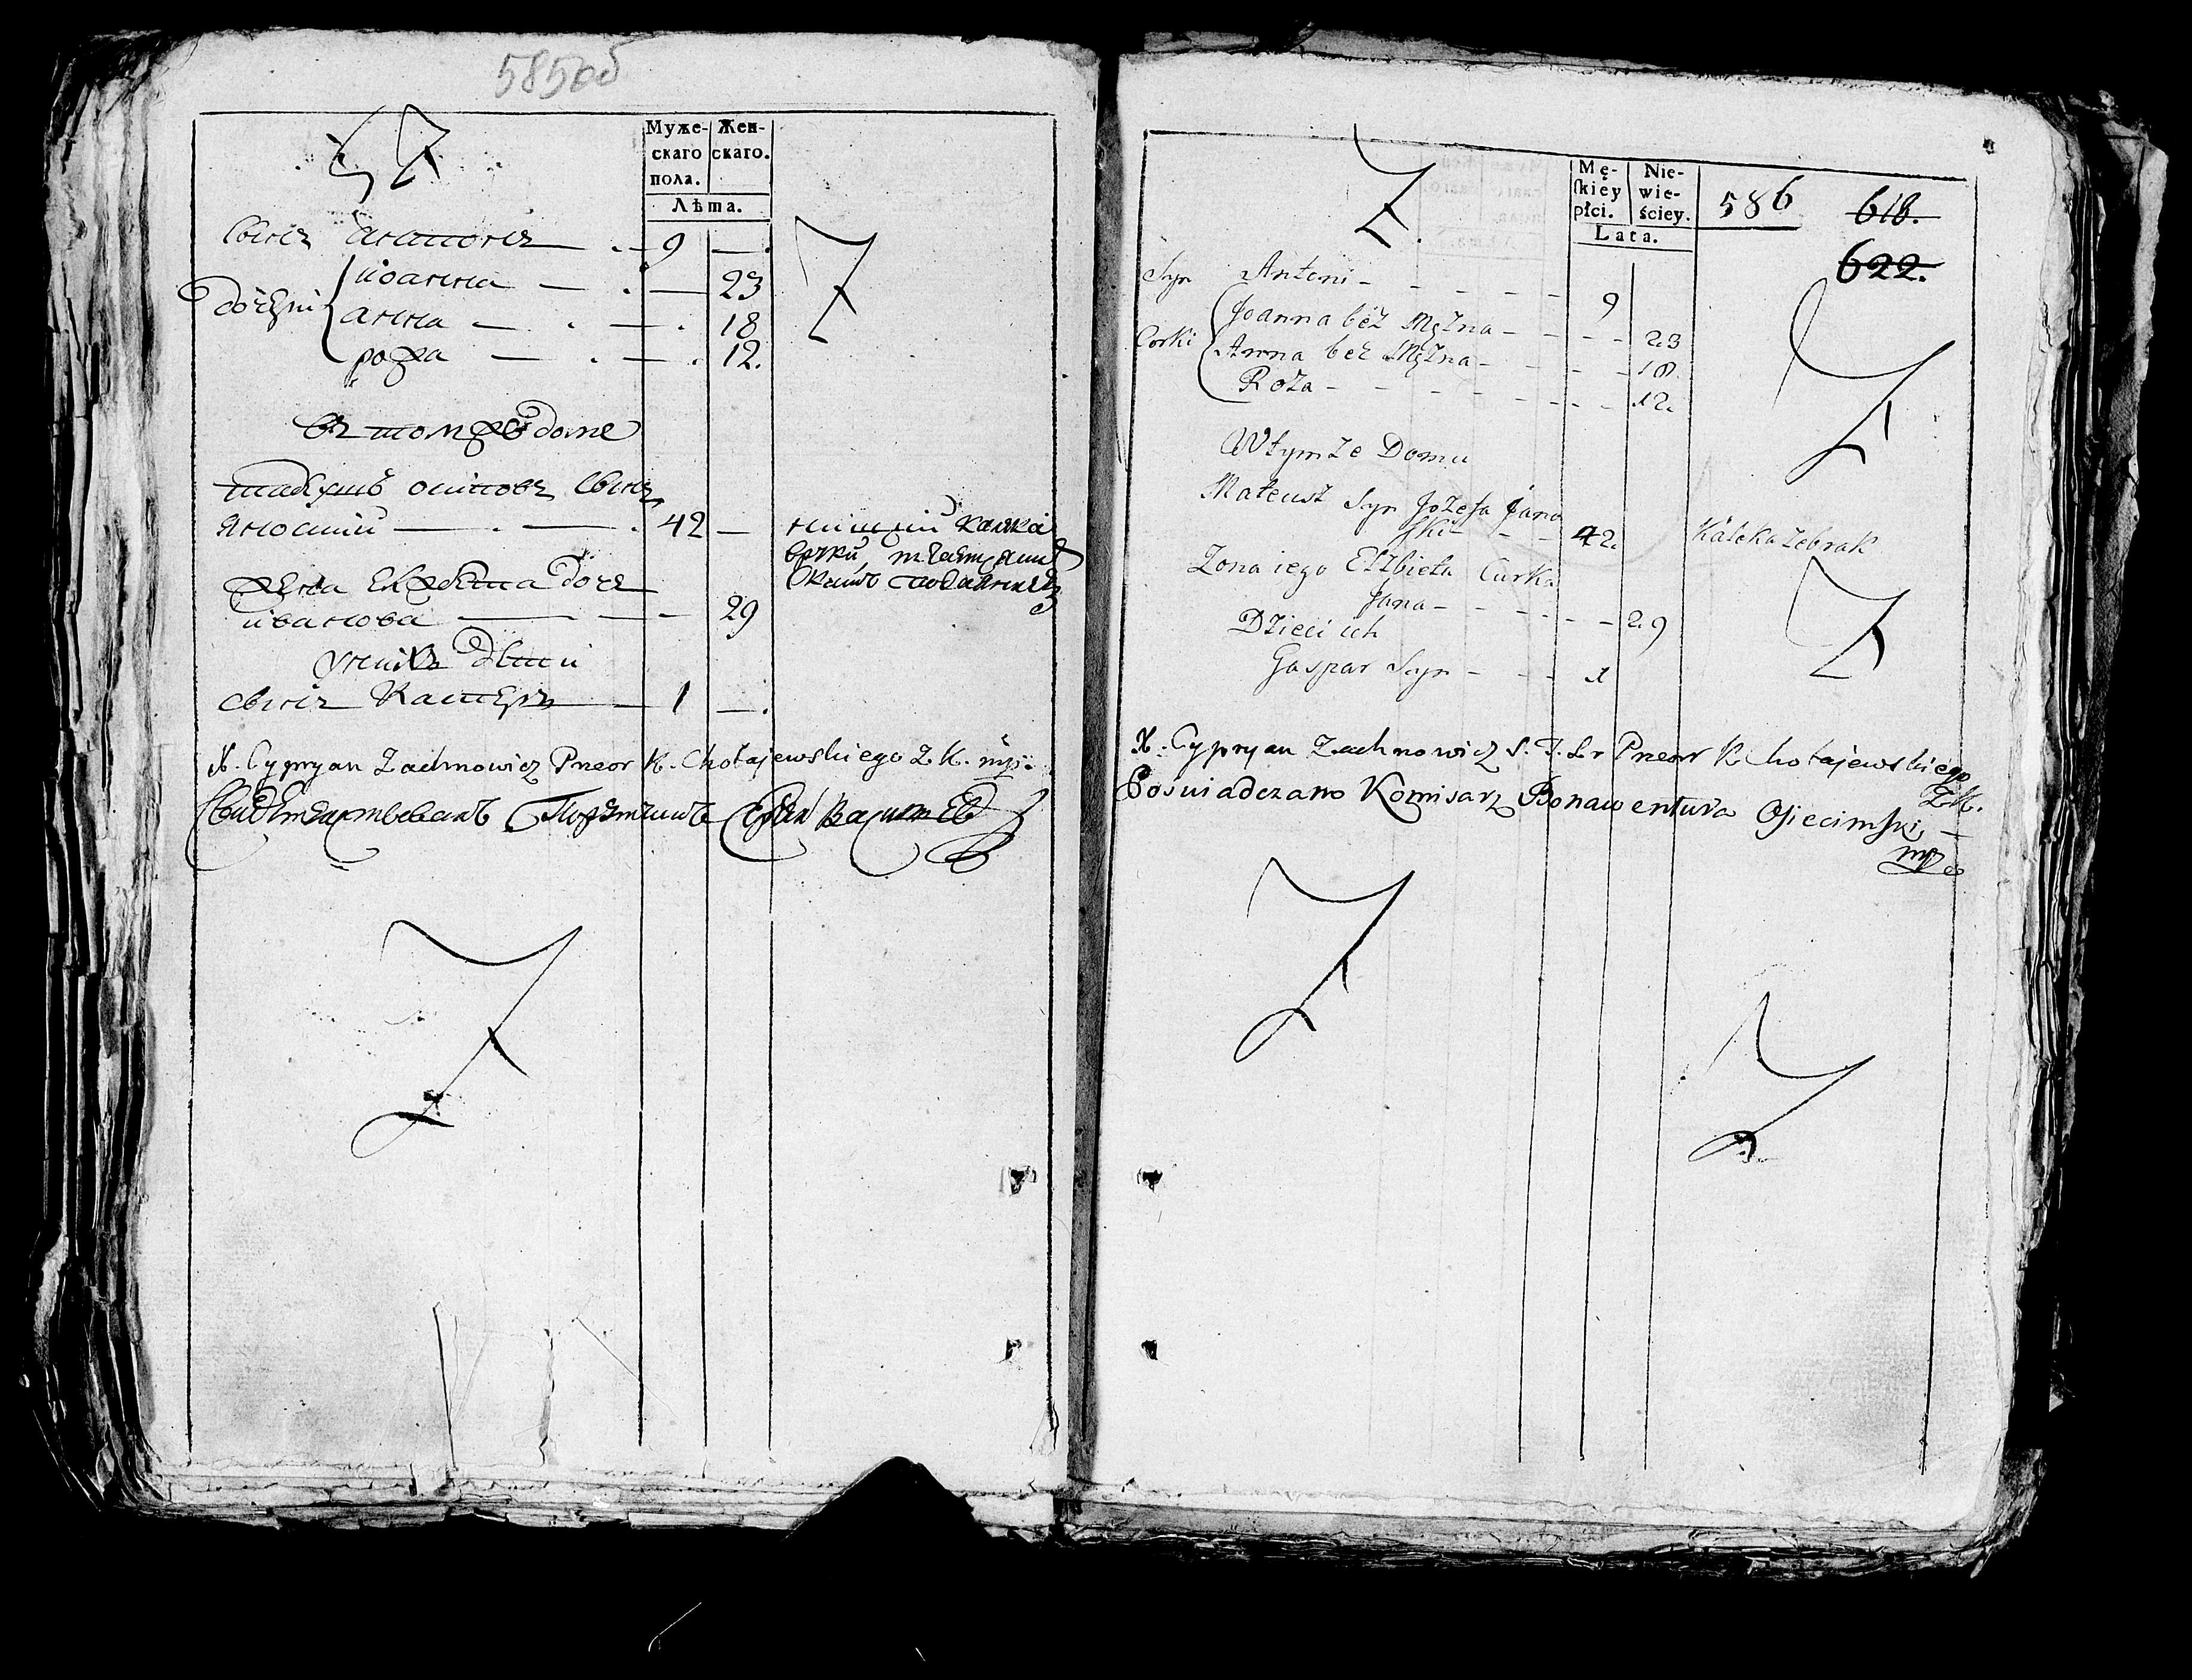 585об
Муже-
скаго
пола.
Жен-
скаго.
Лѣта.
сынъ антонъ 9 —
дочери иоанна — 23
анна — 18
рожа — 12.
въ томже доме
осиповъ сынъ
яноский — 42 —
нищий каляка
жена елжбета дочь
иванова — 29
у нихъ дѣти
сынъ касперъ — 1 —
X. Cypryan Zachnowicz Przeor K. Chołajewskiego Z. K. mp.
Свидетельствовалъ Порутчикъ
Mę-
ſkiey
płci.
Nie-
wie-
ściey.
Lata.
586
618.
622.
Syn Antoni - - - - - 9
Corki Joanna béz Mężna - - - - 23
Anna bez Mężna - - - - 18.
Roża - - - - - - - 12.
W tymże Domu
Mateusz Syn Jozefa Jano
ſki - - 42. Kaleka żebrak
Zona iego Elżbieta Curka
Jana - - - - - - 29
Dzieci ich
Gaspar Syn - - - 1
X. Cypryan Zachnowicz S. T. Lr Przeor K Chołajewskiego
Z.K.
Poświadczano Komisarz Bonawentura Osiecimſki
mp